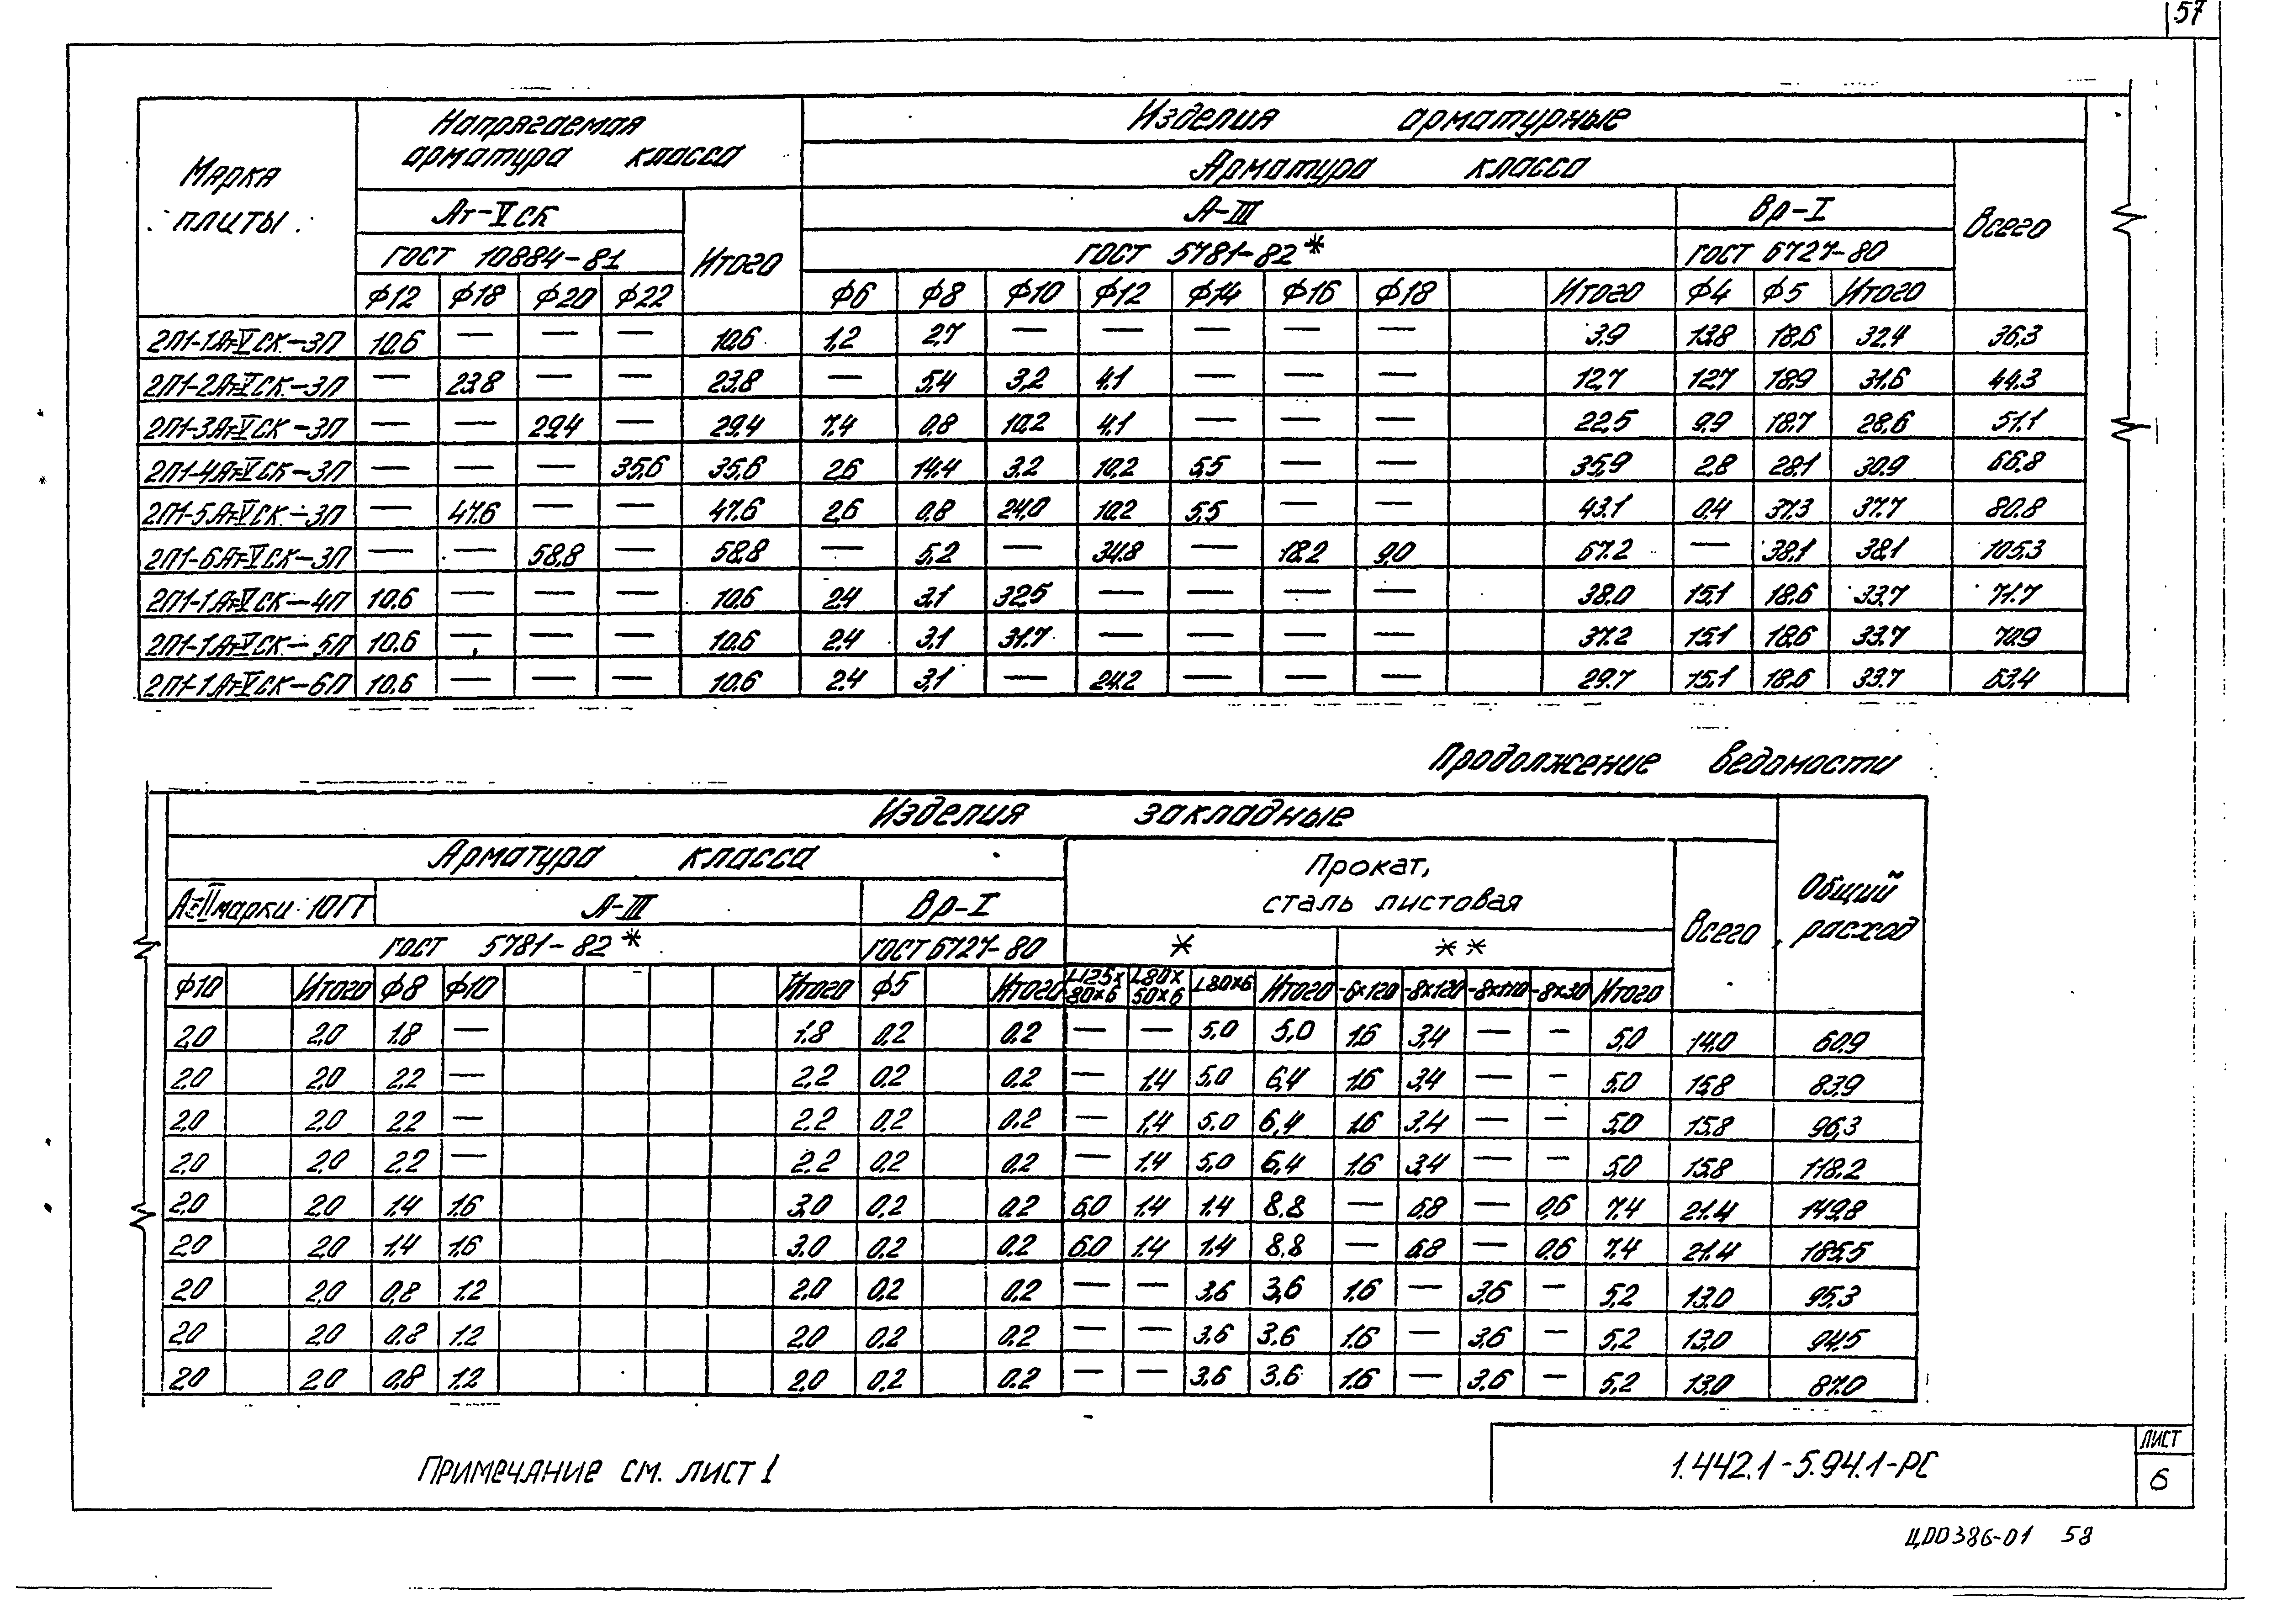 57
Марка плиты | Напрягаемая арматура класса | Изделия арматурные
Арматура класса | Всего
Ат-VСК | Итого | А-III | Вр-I
ГОСТ 10884-81 | ГОСТ 5781-82* | ГОСТ 6727-80
ф12 ф18 ф20 ф22 ф6 ф8 ф10 ф12 ф14 ф16 ф18 Итого ф4 ф5 Итого
2П1-1Ат-VСК-3П 10.6 — — — 10.6 1,2 2,7 — — — — — 3.9 13.8 18.6 32.4 36,3
2П1-2Ат-VСК-3П — 23.8 — — 23.8 — 5,4 3,2 4.1 — — — 12.7 12.7 18.9 31.6 44.3
2П1-3Ат-VСК-3П — — 29.4 — 29.4 7.4 0,8 10,2 4.1 — — — 22.5 9.9 18.7 28.6 51.1
2П1-4Ат-VСК-3П — — — 35,6 35.6 2.6 14.4 3.2 10,2 5,5 — — 35,9 2.8 28.1 30.9 66.8
2П1-5Ат-VСК-3П — 47.6 — — 47.6 2,6 0.8 24,0 10.2 5,5 — — 43.1 0.4 37.3 37.7 80.8
2П1-6Ат-VСК-3П — — 58.8 — 58.8 — 5,2 — 34.8 — 18.2 9,0 67.2 — 38.1 38.1 105,3
2П1-1Ат-VСК-4П 10.6 — — — 10.6 2.4 3,1 32.5 — — — — 38.0 15,1 18.6 33.7 71.7
2П1-1Ат-VСК-5П 10.6 — — — 10.6 2,4 3.1 31.7 — — — — 37.2 15.1 18.6 33.7 70.9
2П1-1Ат-VСК-6П 10.6 — — — 10.6 2.4 3,1 — 24.2 — — — 29.7 15,1 18.6 33.7 63,4
Продолжение ведомости
Изделия закладные | Общий расход
Арматура класса | Прокат, сталь листовая | Всего
Ас-II марки 10ГТ | А-III | Вр-I
ГОСТ 5781-82* | ГОСТ 6727-80 | * | **
ф10 Итого ф8 ф10 Итого ф5 Итого L125x80x6 L80x50x6 L80x6 Итого -6x120 -8x120 -8x110 -8x30 Итого
2,0 2,0 1.8 — 1.8 0.2 0.2 — — 5.0 5,0 1.6 3,4 — — 5,0 14.0 60.9
2.0 2.0 2,2 — 2,2 0.2 0.2 — 1.4 5,0 6,4 1.6 3,4 — — 5.0 15.8 83.9
2.0 2.0 2.2 — 2.2 0.2 0.2 — 1.4 5.0 6,4 1.6 3.4 — — 5,0 15.8 96,3
2,0 2.0 2,2 — 2.2 0,2 0.2 — 1.4 5,0 6,4 1.6 3,4 — — 5,0 15.8 118,2
2.0 2.0 1.4 1.6 3,0 0.2 0.2 6,0 1.4 1.4 8.8 — 6.8 — 0,6 7.4 21.4 149,8
2.0 2.0 1.4 1.6 3.0 0.2 0.2 6.0 1.4 1.4 8.8 — 6.8 — 0.6 7.4 21.4 185.5
2.0 2,0 0,8 1.2 2.0 0.2 0.2 — — 3,6 3,6 1.6 — 3,6 — 5,2 13.0 95.3
2.0 2.0 0.8 1.2 2.0 0.2 0.2 — — 3.6 3.6 1.6 — 3,6 — 5,2 13,0 94.5
2.0 2.0 0,8 1.2 2.0 0.2 0.2 — — 3.6 3.6 1.6 — 3,6 — 5,2 13.0 87.0
Примечание см. лист 1
1.442.1-5.94.1-РС
лист
6
ЦОО386-01 58